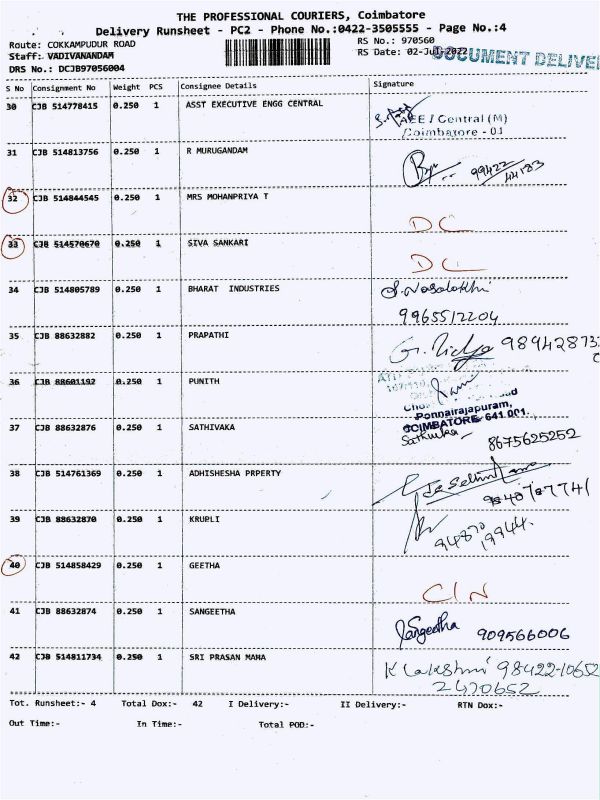 THE PROFESSIONAL COURIERS, Coimbatore
Delivery Runsheet - PC2 - Phone No.:0422-3505555 - Page No.:4
Route: COKKAMPUDUR ROAD RS No.: 970560
Staff: VADIVANANDAM RS Date: 02-Jul-2022 DOCUMENT DELIVER
DRS No.: DCJB97056004
S No Consignment No Weight PCS Consignee Details Signature
30 CJB 514778415 0.250 1 ASST EXECUTIVE ENGG CENTRAL
AEE / Central (M)
Coimbatore - 01
31 CJB 514813756 0.250 1 R MURUGANDAM
99422
44183
32 CJB 514844545 0.250 1 MRS MOHANPRIYA T
DC
33 CJB 514570670 0.250 1 SIVA SANKARI
DC
34 CJB 514805789 0.250 1 BHARAT INDUSTRIES
9965512204
35 CJB 88632882 0.250 1 PRAPATHI
G. Vidya 989428733
36 CJB 88601192 0.250 1 PUNITH
Ponnairajapuram,
COIMBATORE-641 001.
37 CJB 88632876 0.250 1 SATHIVAKA
Sathivaka
8675625252
38 CJB 514761369 0.250 1 ADHISHESHA PRPERTY
39 CJB 88632870 0.250 1 KRUPLI
94870
19944.
40 CJB 514858429 0.250 1 GEETHA
C/N
41 CJB 88632874 0.250 1 SANGEETHA
Sangeetha 909566006
42 CJB 514811734 0.250 1 SRI PRASAN MAHA
K Lakshmi 98422-10652
2470652
Tot. Runsheet:- 4 Total Dox:- 42 I Delivery:- II Delivery:- RTN Dox:-
Out Time:- In Time:- Total POD:-